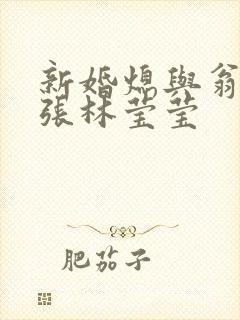 新婚媳與翁
張林莹莹
肥茄子